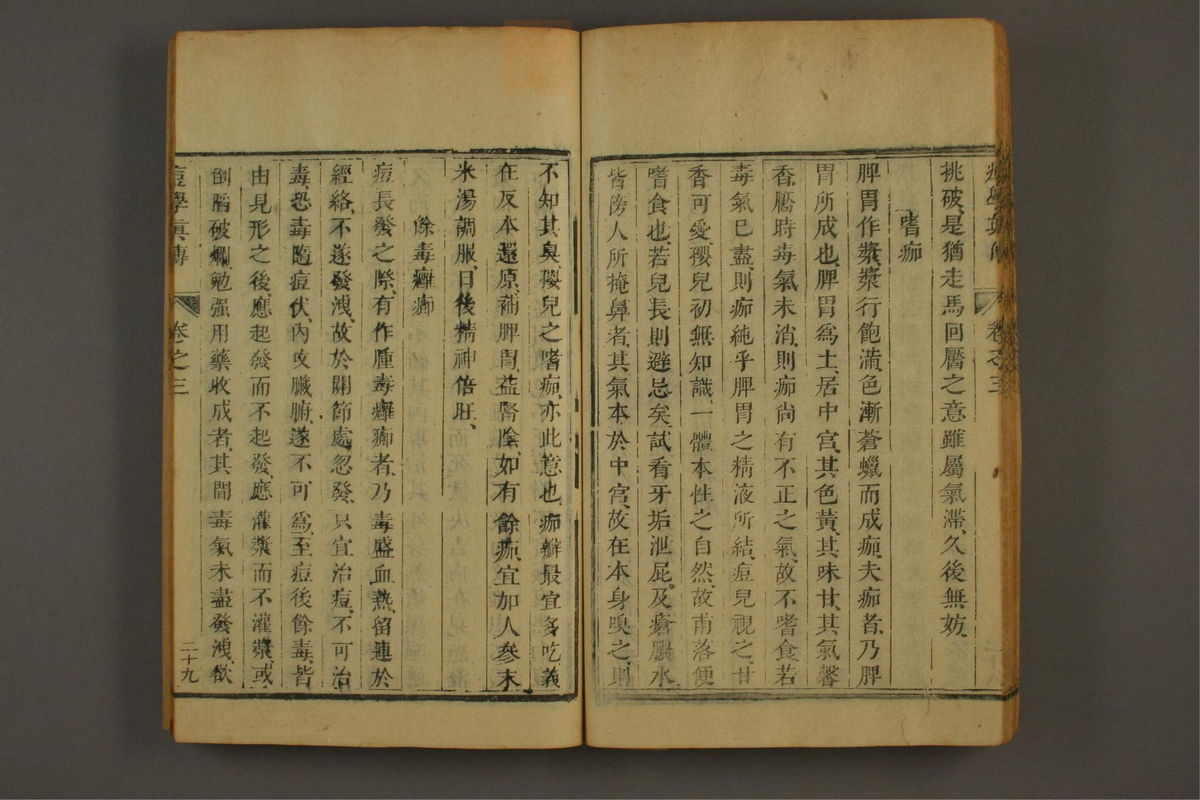 挑破是猶走馬回靨之意雖屬氣滯久後無妨
嗜痂
脾胃作漿漿行飽滿色漸蒼蠟而成痂夫痂者乃脾
胃所成也脾胃爲土居中宮其色黃其味甘其氣馨
香靨時毒氣未消則痂尙有不正之氣故不嗜食若
毒氣已盡則痂純乎脾胃之精液所結痘兒視之甘
香可愛孾兒初無知識一體本性之自然故甫落便
嗜食也若兒長則避忌矣試看牙垢泄屁及瘡膿水
皆傍人所掩鼻者其氣本於中宮故在本身嗅之則
不知其臭孾兒之嗜痂亦此意也痂瓣最宜多吃義
在反本還原補脾胃益腎陰如有餘痂宜加人參末
米湯調服日後精神倍旺
餘毒癰癤
痘長發之際有作腫毒癰癤者乃毒盛血熱留連於
經絡不遂發洩故於關節處忽發只宜治痘不可治
毒恐毒隨痘伏內攻臟腑遂不可爲至痘後餘毒皆
由見形之後應起發而不起發應灌漿而不灌漿或
倒陷破爛勉强用藥收成者其間毒氣未盡發洩欲
痘學眞傳 卷之三 二十九